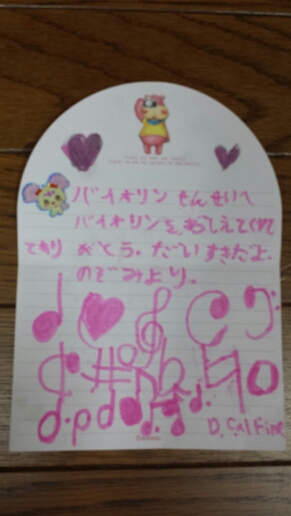 バイオリン せんせいへ
バイオリンを、おしえてくれ
てあり がとう。だいすきだよ。
のぞみより。
D.Cal Fine